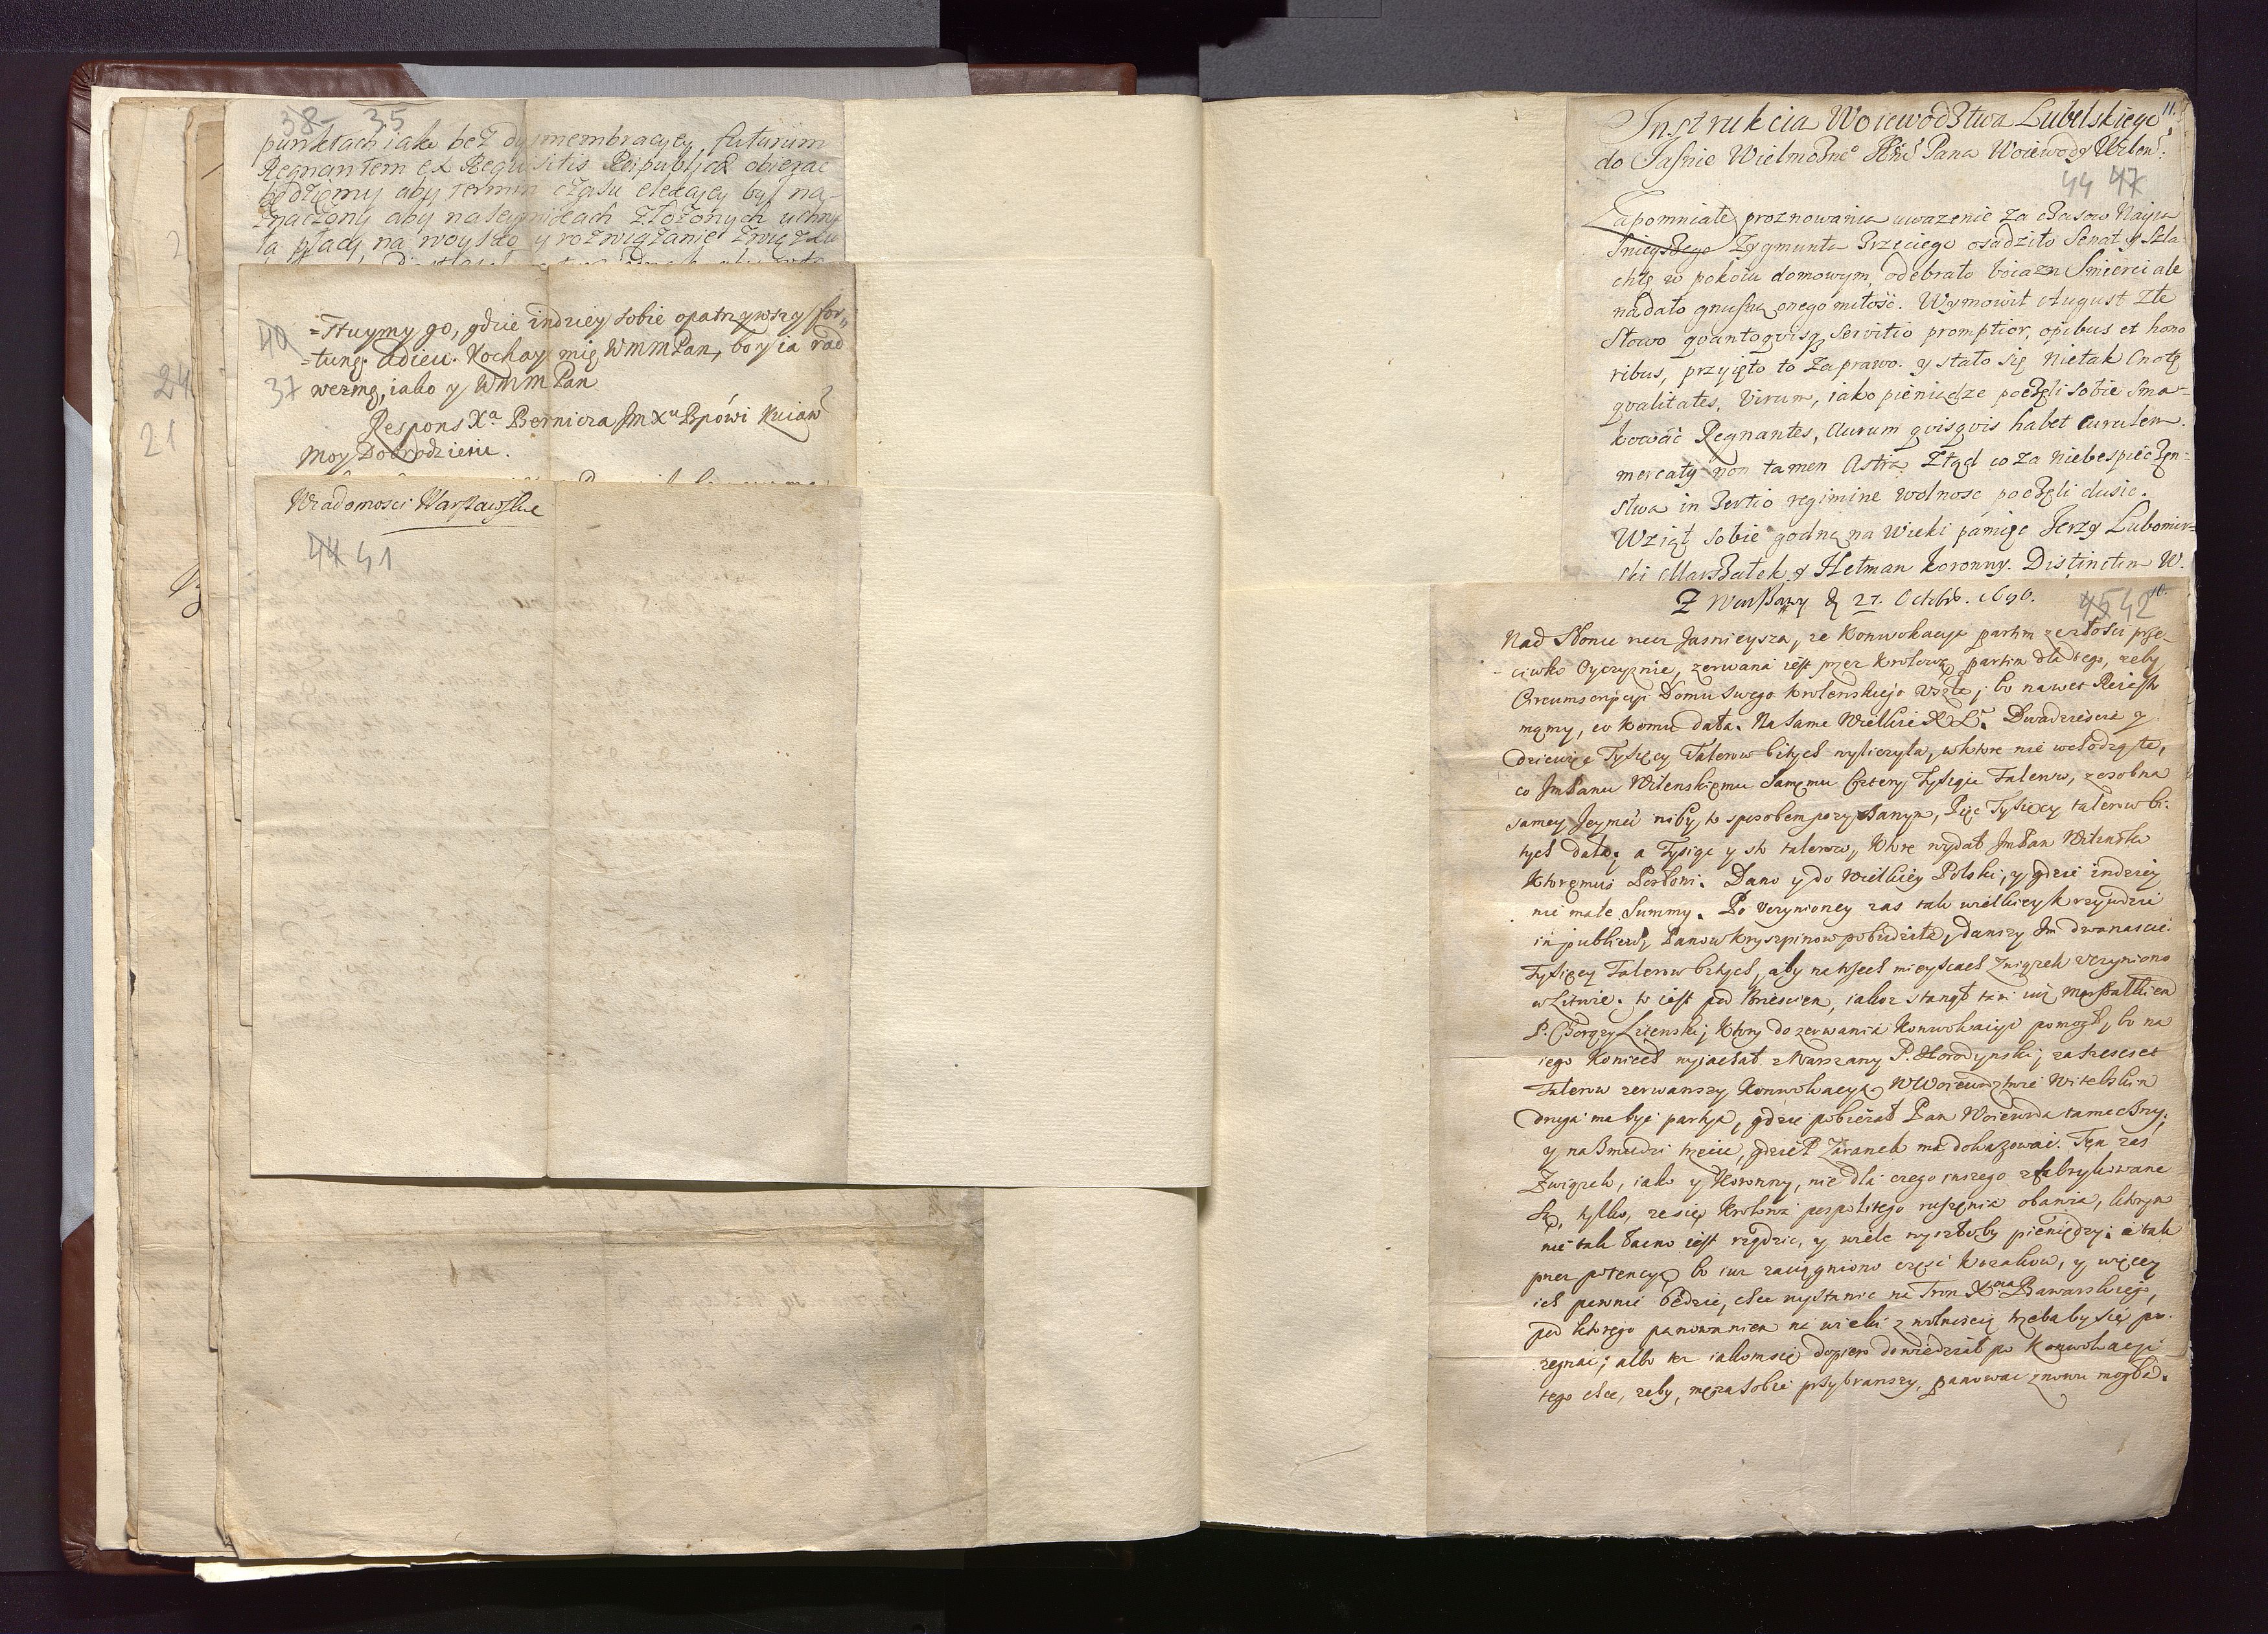 38 35
punktach iako bez dysmembracyey futurum
Regnantem ex Requisitis Reipublicæ obierac
będziemy aby termin czasu elekcyey był na-
znaczony aby na seymikach złozonych uchwa
ła płacy na woysko y rozwiązanie Związku
40
=stuymy go, gdzie indziey sobie opatrzywszy for„
=tunę. Adieu. Kochay mię WMMPan, bo y ia rad
37 wezmę, iako y WMMPan
Respons Xa Berniera Jm Xu Bpówi Kuiaw
Moy Dobrodzieiu.
Wiadomosci Warszawskie
44 41
24
21
Instrukcia Woiewodztwa Lubelskiego 11.
do Jaśnie Wielmożneo Pana Woiewody Wilen:
44 47
Zapomniałe proznowania uwazenie za czasow Nayia
śnieyszego Zygmunta Trzeciego osadziło Senat y Szla
chtę w pokoiu domowym, odebrało boiazn Smierci ale
nadało gnusną onego miłość. Wymowił August złe
Słowo qvanto qvisq servitio promptior, opibus et hono
ribus, przyięto to za prawo. y stało się nie tak Cnotę
qvalitates, Virum, iako pieniądze poczęli sobie sma-
kować Regnantes, Aurum qvisqvis habet Curulem
mercaty non tamen Astra Ztąd co za niebespieczen=
stwa in Tertio regimine wolnosc poczęli dusic.
Wziął sobie godną na Wieki pamięc Jerzy Lubomir=
ski Marszałek y Hetman Koronny. Distinctim W.
Z Warszawy d 27. Octobr. 1696. 45 42 10.
Nad Słonce rzecz Jasnieysza, ze Konwokacya partim ze złości prze-
-ciwko Oyczyznie, zerwana iest przez Krolową partim dla tego, zeby
Circumscripcyi Domu swego Krolewskiego uszła, bo nawet Reiestr
mamy, co komu dała. Na same Wielkie X L. Dwadziescia y
dziewięc Tysięcy Talerow bitych wyliczyła, w ktore nie wchodzą te,
co JmPanu Wilenskiemu Samemu Cztery Tysiące Talerow, z osobna
samey Jeymci niby to sposobem pozyczanym, Pięc Tysięcy talerow bi-
tych dała; a Tysiąc y sto talerow, ktore wydał JmPan Wilenski
ktoremus Posłowi. Dano y do Wielkiey Polski, y gdzie indziey
nie małe Summy. Po uczynioney zas tak wielkiey krzywdzie
in publico, Panow Kryszpinow pobudziła, dawszy Im dwanascie
Tysięcy Talerow bitych, aby na trzech mieyscach Związek uczyniono
w Litwie. to iest pod Brzesciem, iakoz stanął tam iuz Marszałkiem
P. Chorąży, ktory do zerwania Konwokacyi pomogł, bo na
iego koniech wyiachał z Warszawy P. Horodynski, za szescset
Talerow zerwawszy Konwokacyą. W Woiewodztwie Witebskim
druga ma bydz partya, gdzie pobieżał Pan Woiewoda tameczny,
y na Zmudzi trzecia, gdzie P Zaranek ma dokazowac. Ten zas
Związek, iako y Koronny, nie dla czego inszego zfabrykowane
są, tylko, ze się Krolowa pospolitego ruszenia obawia, ktorym
nie tak łacno iest rządzic, y wiele wyszłoby pieniędzy: a tak
przez potencyą bo iuz zaciągniono częsc Kozakow, y więcey
ich pewnie będzie, chce wystawic na Tron Xcia Bawarskiego,
pod ktorego panowaniem na wieki z wolnoscią trzebaby się po-
zegnac; albo tez iakom się dopiero dowiedział po Konwokacyi
tego chce, zeby, męza sobie przybrawszy, panowac znowu mogła.